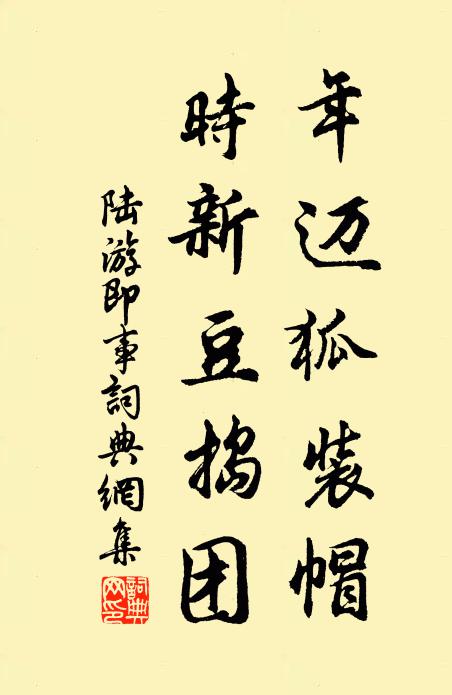 年迈狐装帽
時新豆捣团
陆游即事詞典網集
詞典网印